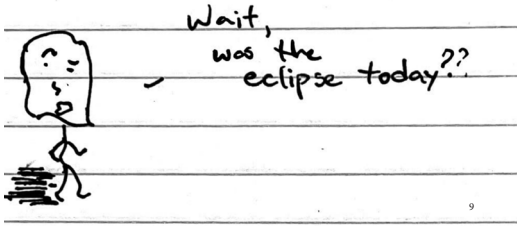 Wait,
was the
eclipse today??
9